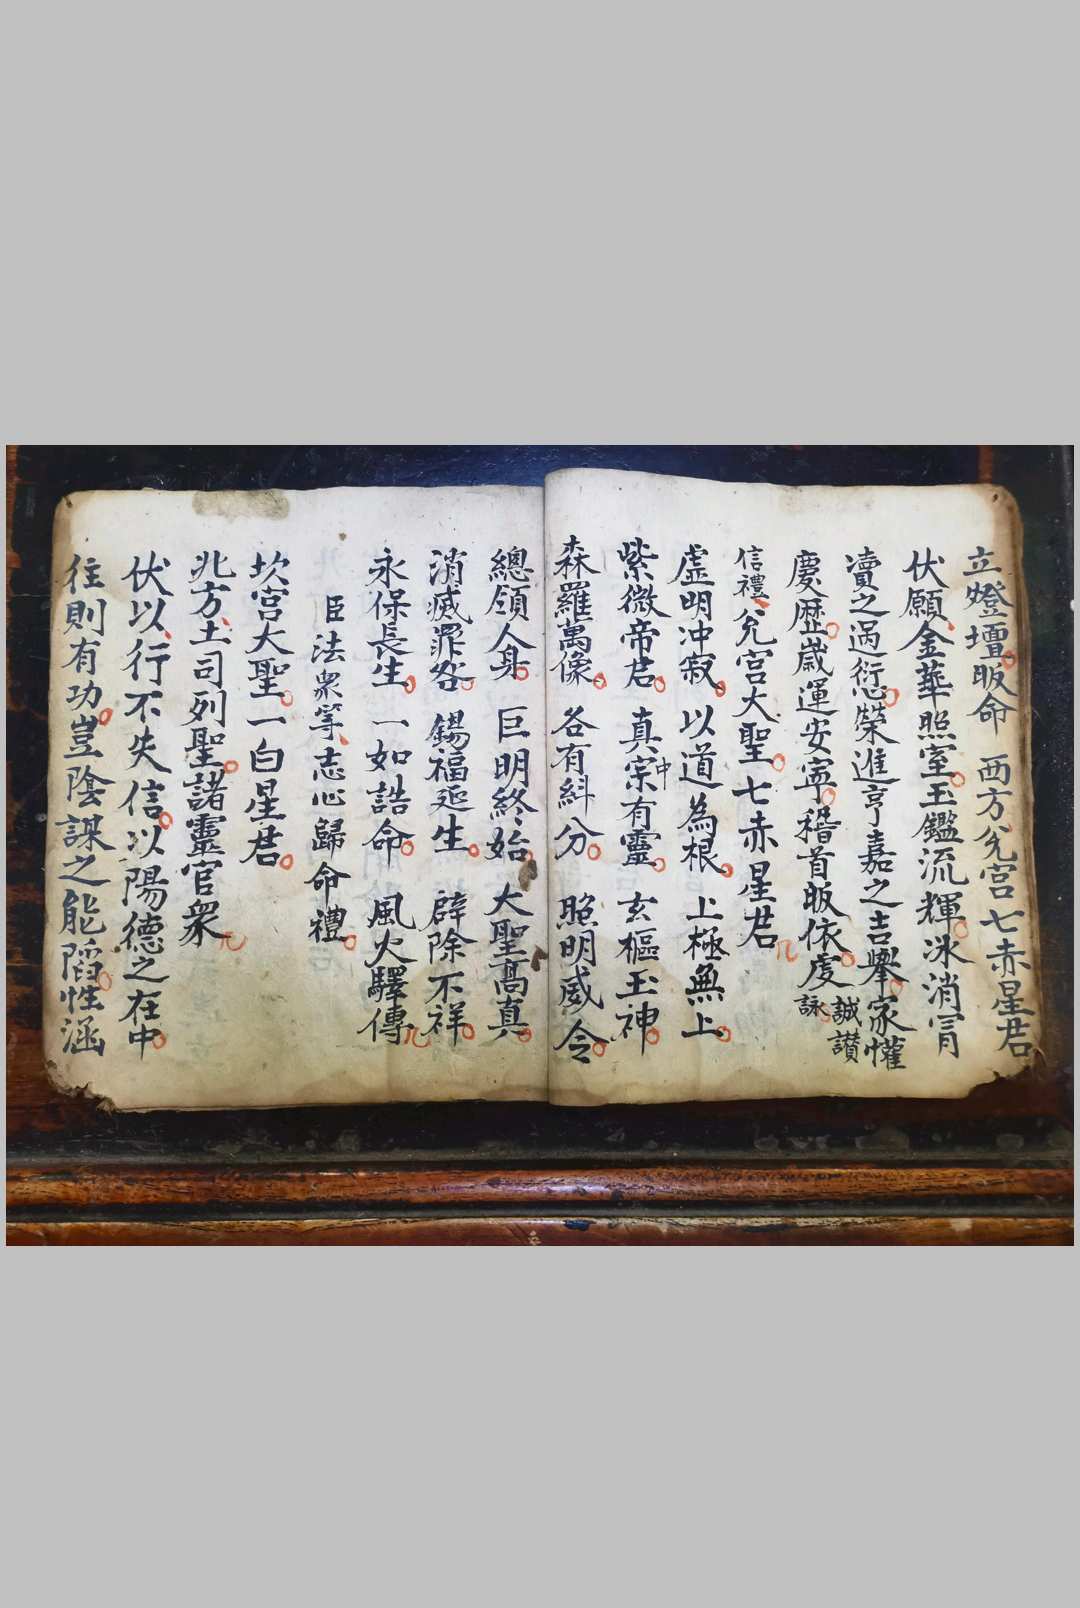 立燈壇皈命 西方兌宮七赤星君
伏願金華照室玉鑑流輝冰消冐
瀆之過衍榮進亨嘉之吉舉家懽
慶歷歲運安寧稽首皈依虔誠讃詠
信禮兌宮大聖七赤星君
虛明冲寂 以道為根 上極無上
紫微帝君 真宗中有靈 玄樞玉神
森羅萬像 各有糾分 照明威令
總領人身 巨明終始 大聖高真
消滅罪咎 錫福延生 辟除不祥
永保長生 一如誥命 風火驛傳
臣法眾等志心歸命禮
坎宮大聖一白星君
北方土司列聖諸靈官衆
伏以行不失信以陽德之在中
往則有功豈陰謀之能䧟性涵